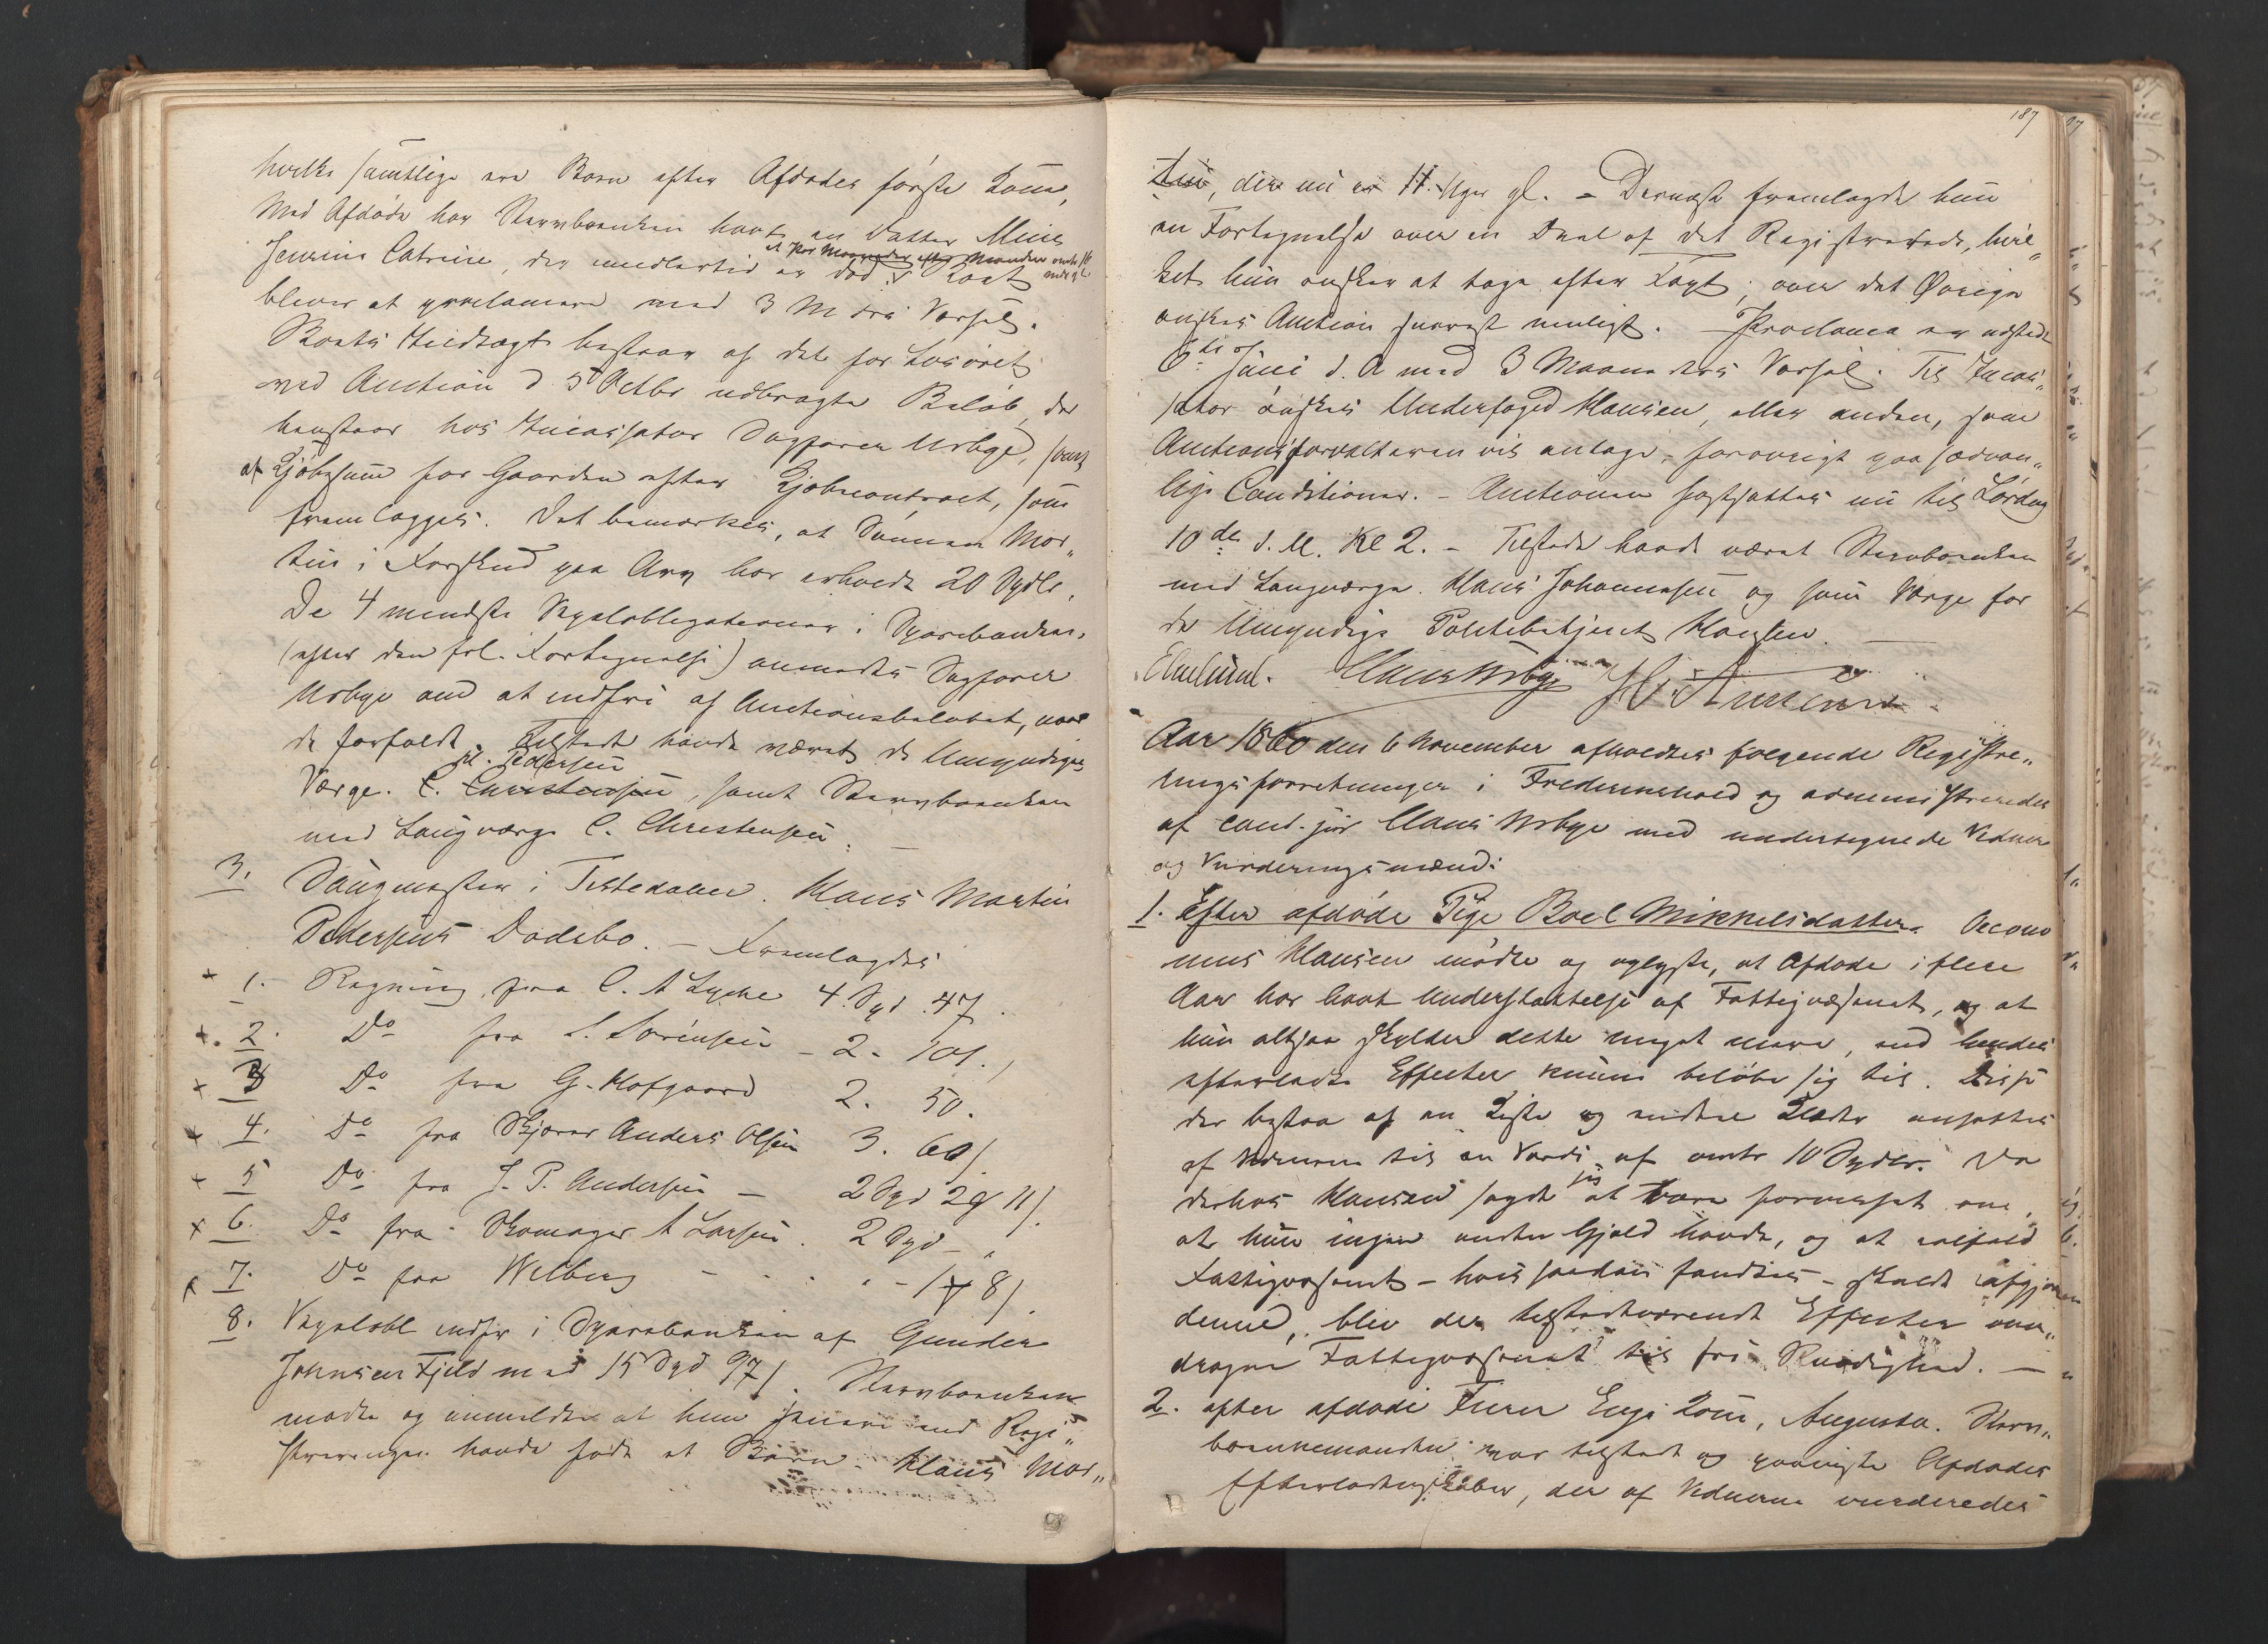 hvilke samtlige ere Børn efter Afdødes første Kone,
Med Afdøde har Stervboenken havt en Datter Mine
Jensine Catrine, der imedlertid er død. Boet
et Par Maaneder efter Manden
bliver at proclamere med 3 M drs Varsel.
Boets Indtægt bestaar af det for Løsøret
ved Auction d 5 Octbr udbragte Beløb, der
henstaar hos Incassator Sagfører Urbye, samt
af Kjøbesum for Gaarden efter Kjøbecontract, som
fremlægges. Det bemærkes, at Sønnen Mor„
tin i Forskud paa Arv har erholdt 20 Spdlr.
De 4 mindste Vexelobligationer i Sparebanken,
(efter den frl. Fortegnelse) anmodes Sagfører
Urbye om at indfri af Auctionsbeløbet, naar
de forfalde. Tilstede havde været de Umyndiges
Værge. C. Christensen, samt Stervboenken
Pedersen
med Laugværge C. Christensen.
3. Saugmester i Tistedalen Hans Martin
Pedersens Dødsbo. – Fremlagdes
+ 1. Regning fra C. A Lyche 4 Spd 47
+ 2. Do fra S. Sørensen – 2. 101.
+ 3 Do fra G. Hofgaard 2. 50.
+ 4. Do fra Anders Olsen 3. 60
+ 5 Do fra J. P. Andersen – 2 Spd 2 11
x 6. Do fra Skomager A Larsen. 2 Spd – „
x 7. Do fra Welberg – 1 8
8. Vexelobl indfr i Sparebanken af Gunder
Johnsen Fjeld med 15 Spd 97. Stervboenken
mødte og anmeldte at hun senere end Regi„
streringen havde født et Barn – Hans Mar„
187
tin, der nu er 11 Uger gl. – Dernæst fremlagde hun
en Fortegnelse over en Deel af det Registrerede, hvil„
ket hun ønsker at tage efter Taxt; over det Øvrige
ønskes Auction snarest muligt. – Proclama er udstedt
6te Juni d. A med 3 Maaneders Varsel. Til Incas„
sator ønskes Underfoged Hansen, eller anden, som
Auctionsforvalteren vil antage, forøvrigt paa sædvan„
lige Conditioner. – Auctionen fastsattes nu til Lørdag
10de d. M. Kl 2. – Tilstede havde været Stervboenken
med Laugværge Hans Johannesen og som Værge for
de Umyndige Politibetjent Karlsen.
Claus Urbye
Aar 1860 den 6 November afholdtes følgende Registre„
ringsforretninger i Fredrikshald og administreredes
af cand. jur Claus Urbye med undertegnede Vidner
og Vurderingsmænd:
1. Efter afdøde Pige Boel Mikkelsdatter. Oecono
mus Hansen mødte og oplyste, at Afdøde i flere
Aar har havt Understøttelse af Fattigvæsenet, og at
hun altsaa skylder dette meget mere, end hendes
efterladte Effecter kunne beløbe sig til. Disse
der bestaa af en Kiste og endeel Klæder ansattes
af Vidnerne til en Værdi af omtr 10 Spdlr. Da
derhos Hansen sagde sig at være forvisset om,
at hun ingen anden Gjæld havde, og at ialfald
Fattigvæsenet – hvis saadan fandtes – skulde afgjøre
denne, blev de tilstedeværende Effecter over„
dragne Fattigvæsenet til fri Raadighed. –
2. efter afdøde Furer Engs Kone, Augusta. Sterv„
boenkemanden var tilstede og paaviste Afdødes
Efterladenskaber, der af Vidnerne vurderedes